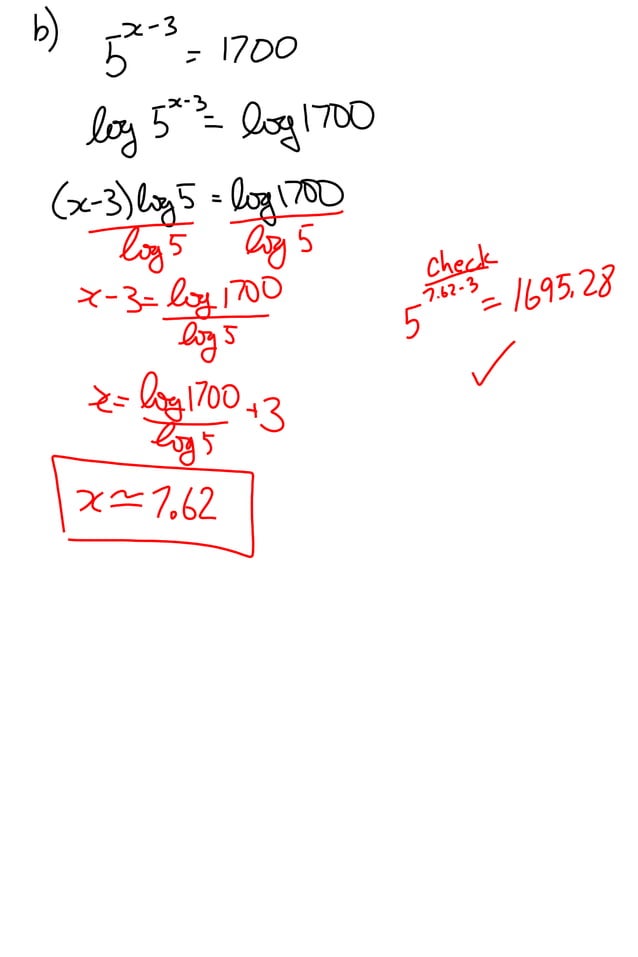 b) 5^(x-3) = 1700
log 5^(x-3) = log 1700
(x-3) log 5 = log 1700
log 5 log 5
x - 3 = log 1700
log 5
x = log 1700 + 3
log 5
x ≃ 7.62
check
5^(7.62-3) = 1695.28
✓